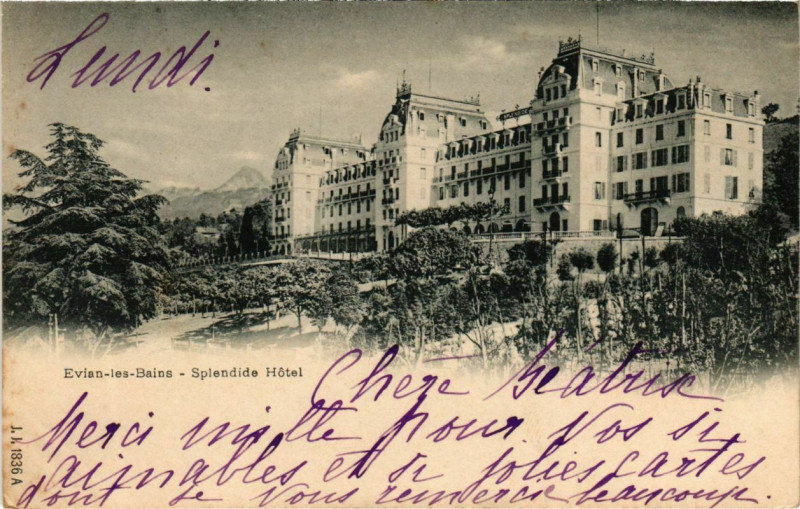 Lundi.
SPLENDIDE
Evian-les-Bains - Splendide Hôtel
J. J. 1836 A
Chère Béatrix
Merci mille pour Vos si
aimables et si jolies cartes
dont je Vous remercie beaucoup.